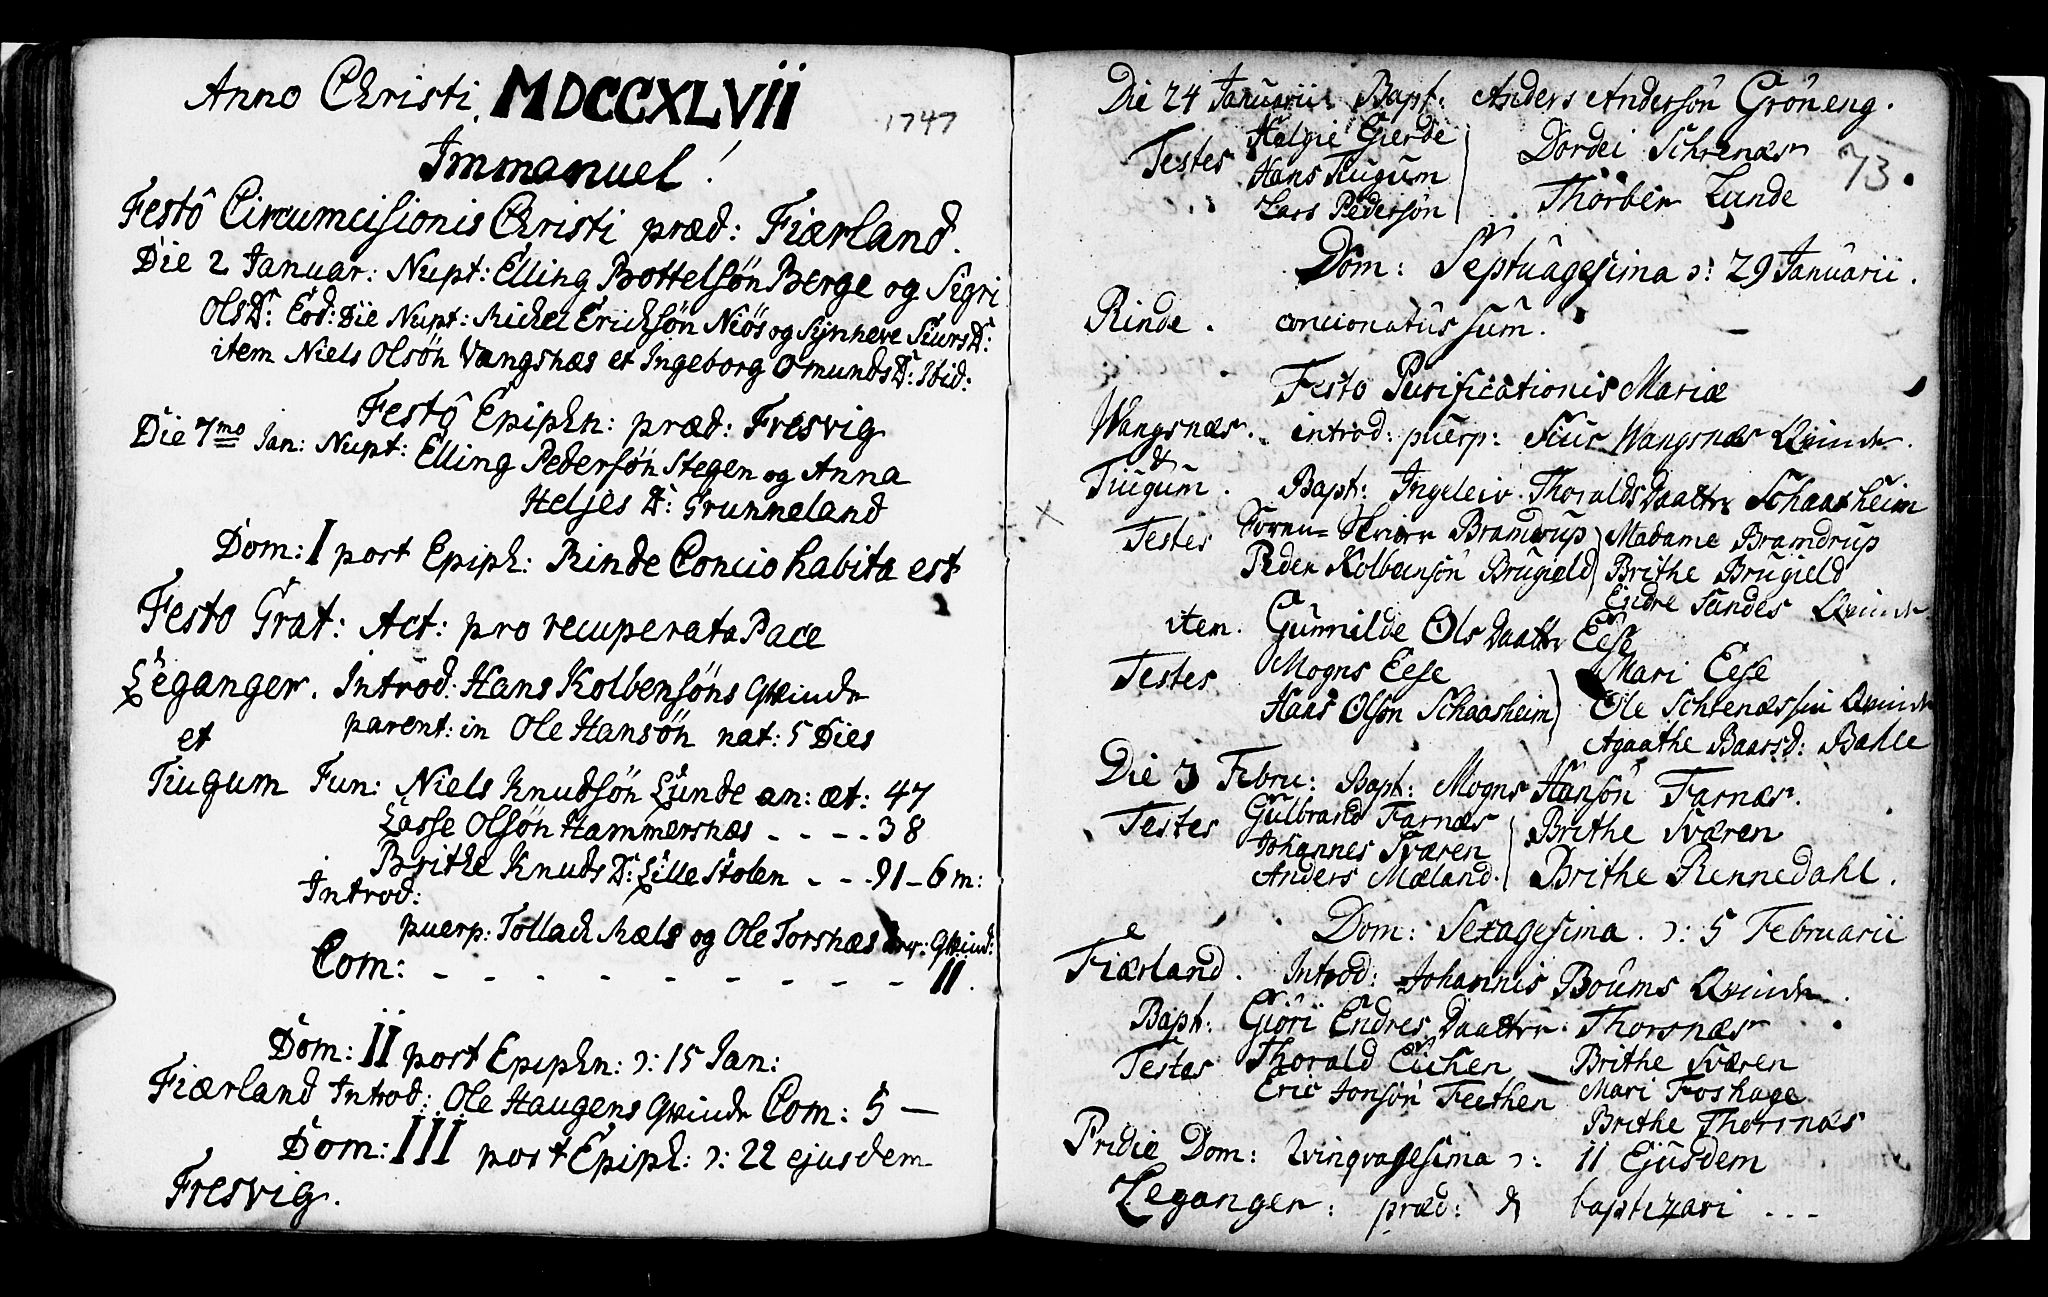 Anno Christi, MDCCXLVII
1747
Immanuel!
Festô Circumcisionis Christi præd: Fiærland.
Die 2 Januar: Nupt: Elling Bottelsøn Berge og Sigri
Ols D: Eod: Die Nupt: Michel Erichsøn Niøs og Synneve Siurs D:
item Niels Olsøn Vangsnæs et Ingeborg Omunds D: Ibid:
Festô Epiphn: præd: Fresvig
Die 7mo Jan: Nupt: Elling Pedersøn Stegen og Anna
Heljes D: Grunneland
Dom: I post Epiph: Rinde Concio habita est
Festo Grat: Act: pro recuperata Pace
Leganger. Introd: Hans Kolbensøns Qvinde
parent: in Ole Hansøn nat: 5 Dies
et
Tiugum Fun: Niels Knudsøn Lunde an: æt: 47
Lasse Olsøn Hammersnæs - - - - 38
Brithe Knuds D: Lille Stolen - - - 91 - 6 m:
Introd:
puerp: Tollach Mæls og Ole Torsnæs Qvind:
Com: - - - - - - - - - 11.
Dom: II post Epiphn: ɔ: 15 Jan:
Fiærland Introd: Ole Haugens Qvinde Com: 5 -
Dom: III post Epiph: ɔ: 22 ejusdem
Fresvig.
Die 24 Januarii Bapt: Anders Andersøn Grøneng.
73.
Testes Helgie Gierde Dordei Schrenæs
Hans Tiugum
Lars Pedersøn Thorber Lunde
Dom: Septuagesima ɔ: 29 Januarii.
Rinde. concionatus sum.
Festo Purificationis Mariæ
Wangsnæs. introd: puerp: Siur Wangsnæs Qvinde.
&
Tiugum. Bapt: Ingeleiv Thoralds Daatter Schaasheim
Testes Brandrup Madame Bramdrup
Peder Kolbensøn Brugield Brithe Brugield
Endre Sandes Qvinde
item. Gunnilde Ols Daatter Eese
Testes Mogns Eese Mari Eese
Hans Olsøn Schaasheim Ole Schrenæs Qvinde
Agaathe Baarsd: Bahle
Die 3 Febru: Bapt: Mogns Hansøn Farnæs.
Testes Gulbrand Farnæs Brithe Sværen
Johannes Sværen
Anders Mæland. Brithe Rennedahl.
Dom: Sexagesima. ɔ: 5 Februarii
Fiærland. Introd: Johannis Boums Qvinde.
Bapt: Giøri Endres Daatter Thorsnæs
Testes Thorald Eichen Brithe Sværen
Eric Jonsøn Feethen Mari Foshage
Brithe Thorsnæs
Pridie Dom: Qvinqvagesima ɔ: 11 Ejusdem
Leganger: præd: & baptizavi - - -